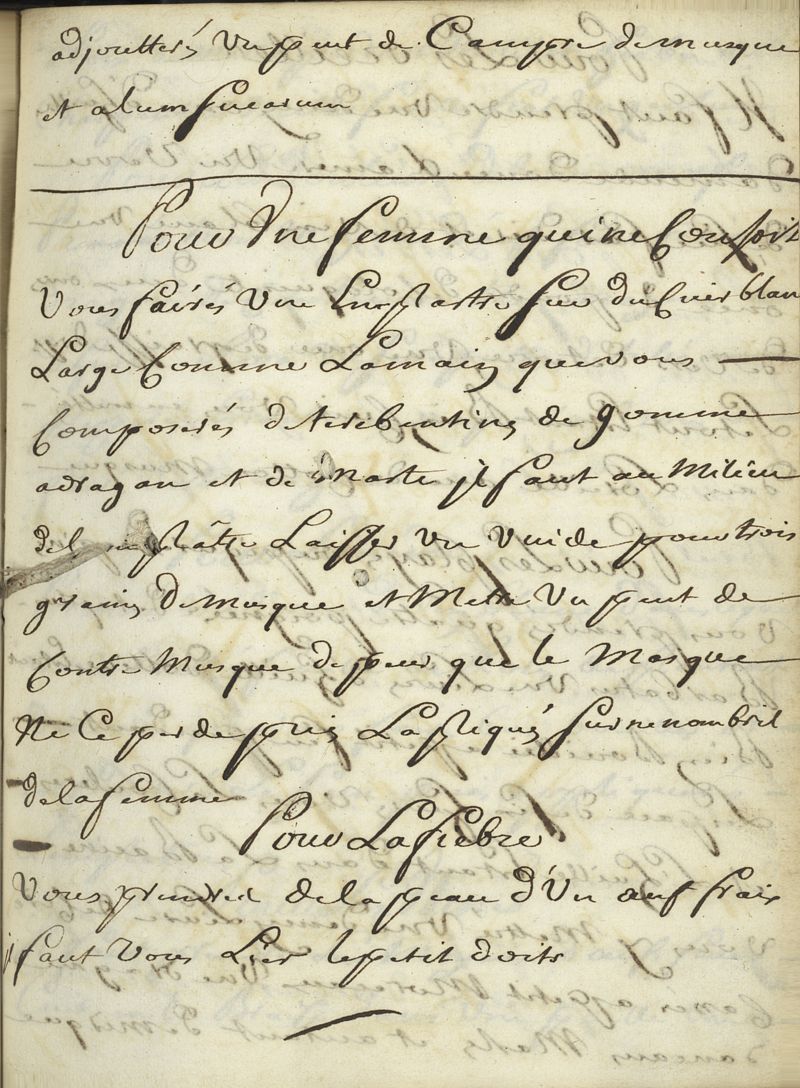 adjoutterés un peut de Campre de musque
et alum sucarum
Pour Une femme qui ne Consoit
Vous fairés une Emplastre sur du Cuir blan
Large Comme La main que vous
Composerés de terebentine de gomme
adragan et de mastic jl faut au Milieu
del emplâtre Laisser un vuide pour trois
grains de musque et Mettre Un peut de
Contre Musque de peur que le Masque
Ne Ce perde puis Lapliqués sur ne nombril
de la femme
Pour La fiebre
Vous prendrez de la peau d'Un œuf frais
jl faut vous Lier le petit doits